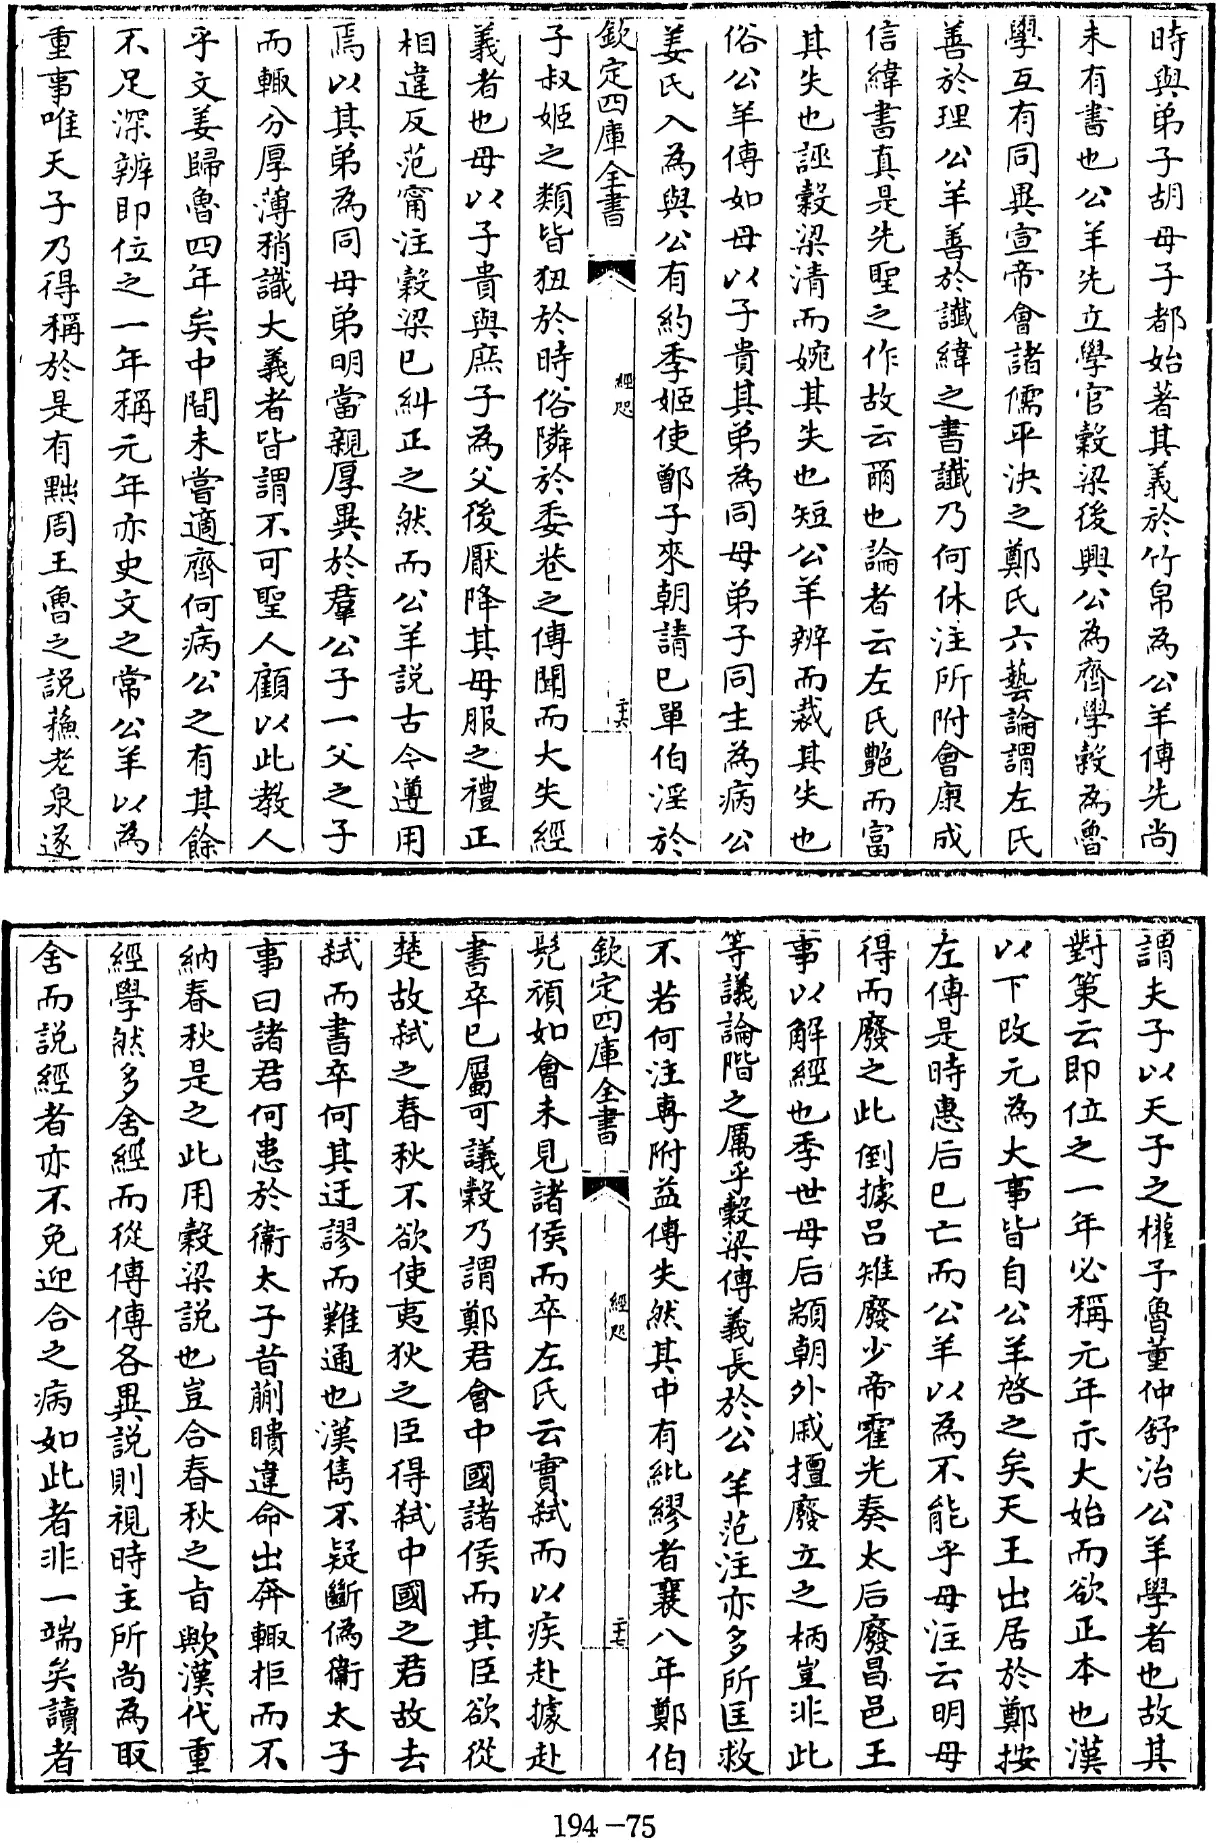 時與弟子胡母子都始著其義於竹帛為公羊傳先尚
未有書也公羊先立學官穀梁後興公為齊學穀為魯
學互有同異宣帝會諸儒平決之鄭氏六藝論謂左氏
善於理公羊善於讖緯之書讖乃何休注所附會康成
信緯書真是先聖之作故云爾也論者云左氏艷而富
其失也誣穀梁清而婉其失也短公羊辨而裁其失也
俗公羊傳如母以子貴其弟為同母弟子同生為病公
姜氏入為與公有約季姬使鄫子來朝請已單伯淫於
欽定四庫全書
經咫
二十六
子叔姬之類皆狃於時俗隣於委巷之傳聞而大失經
義者也母以子貴與庶子為父後厭降其母服之禮正
相違反范甯注穀梁已糾正之然而公羊説古今遵用
焉以其弟為同母弟明當親厚異於羣公子一父之子
而輒分厚薄稍識大義者皆謂不可聖人顧以此教人
乎文姜歸魯四年矣中間未嘗適齊何病公之有其餘
不足深辨即位之一年稱元年亦史文之常公羊以為
重事唯天子乃得稱於是有黜周王魯之説蘓老泉遂
謂夫子以天子之權予魯董仲舒治公羊學者也故其
對策云即位之一年必稱元年示大始而欲正本也漢
以下改元為大事皆自公羊啓之矣天王出居於鄭按
左傳是時惠后已亡而公羊以為不能乎母注云明母
得而廢之此倒據呂雉廢少帝霍光奏太后廢昌邑王
事以解經也季世母后顓朝外戚擅廢立之柄豈非此
等議論階之厲乎穀梁傳義長於公羊范注亦多所匡救
不若何注專附益傳失然其中有紕繆者襄八年鄭伯
欽定四庫全書
經咫
二十七
髠頑如會未見諸侯而卒左氏云實弑而以疾赴據赴
書卒已屬可議穀乃謂鄭君會中國諸侯而其臣欲從
楚故弑之春秋不欲使夷狄之臣得弑中國之君故去
弑而書卒何其迂謬而難通也漢雋不疑斷偽衞太子
事曰諸君何患於衞太子昔蒯聵違命出奔輒拒而不
納春秋是之此用穀梁説也豈合春秋之旨歟漢代重
經學然多舍經而從傳傳各異説則視時主所尚為取
舍而説經者亦不免迎合之病如此者非一端矣讀者
194-75